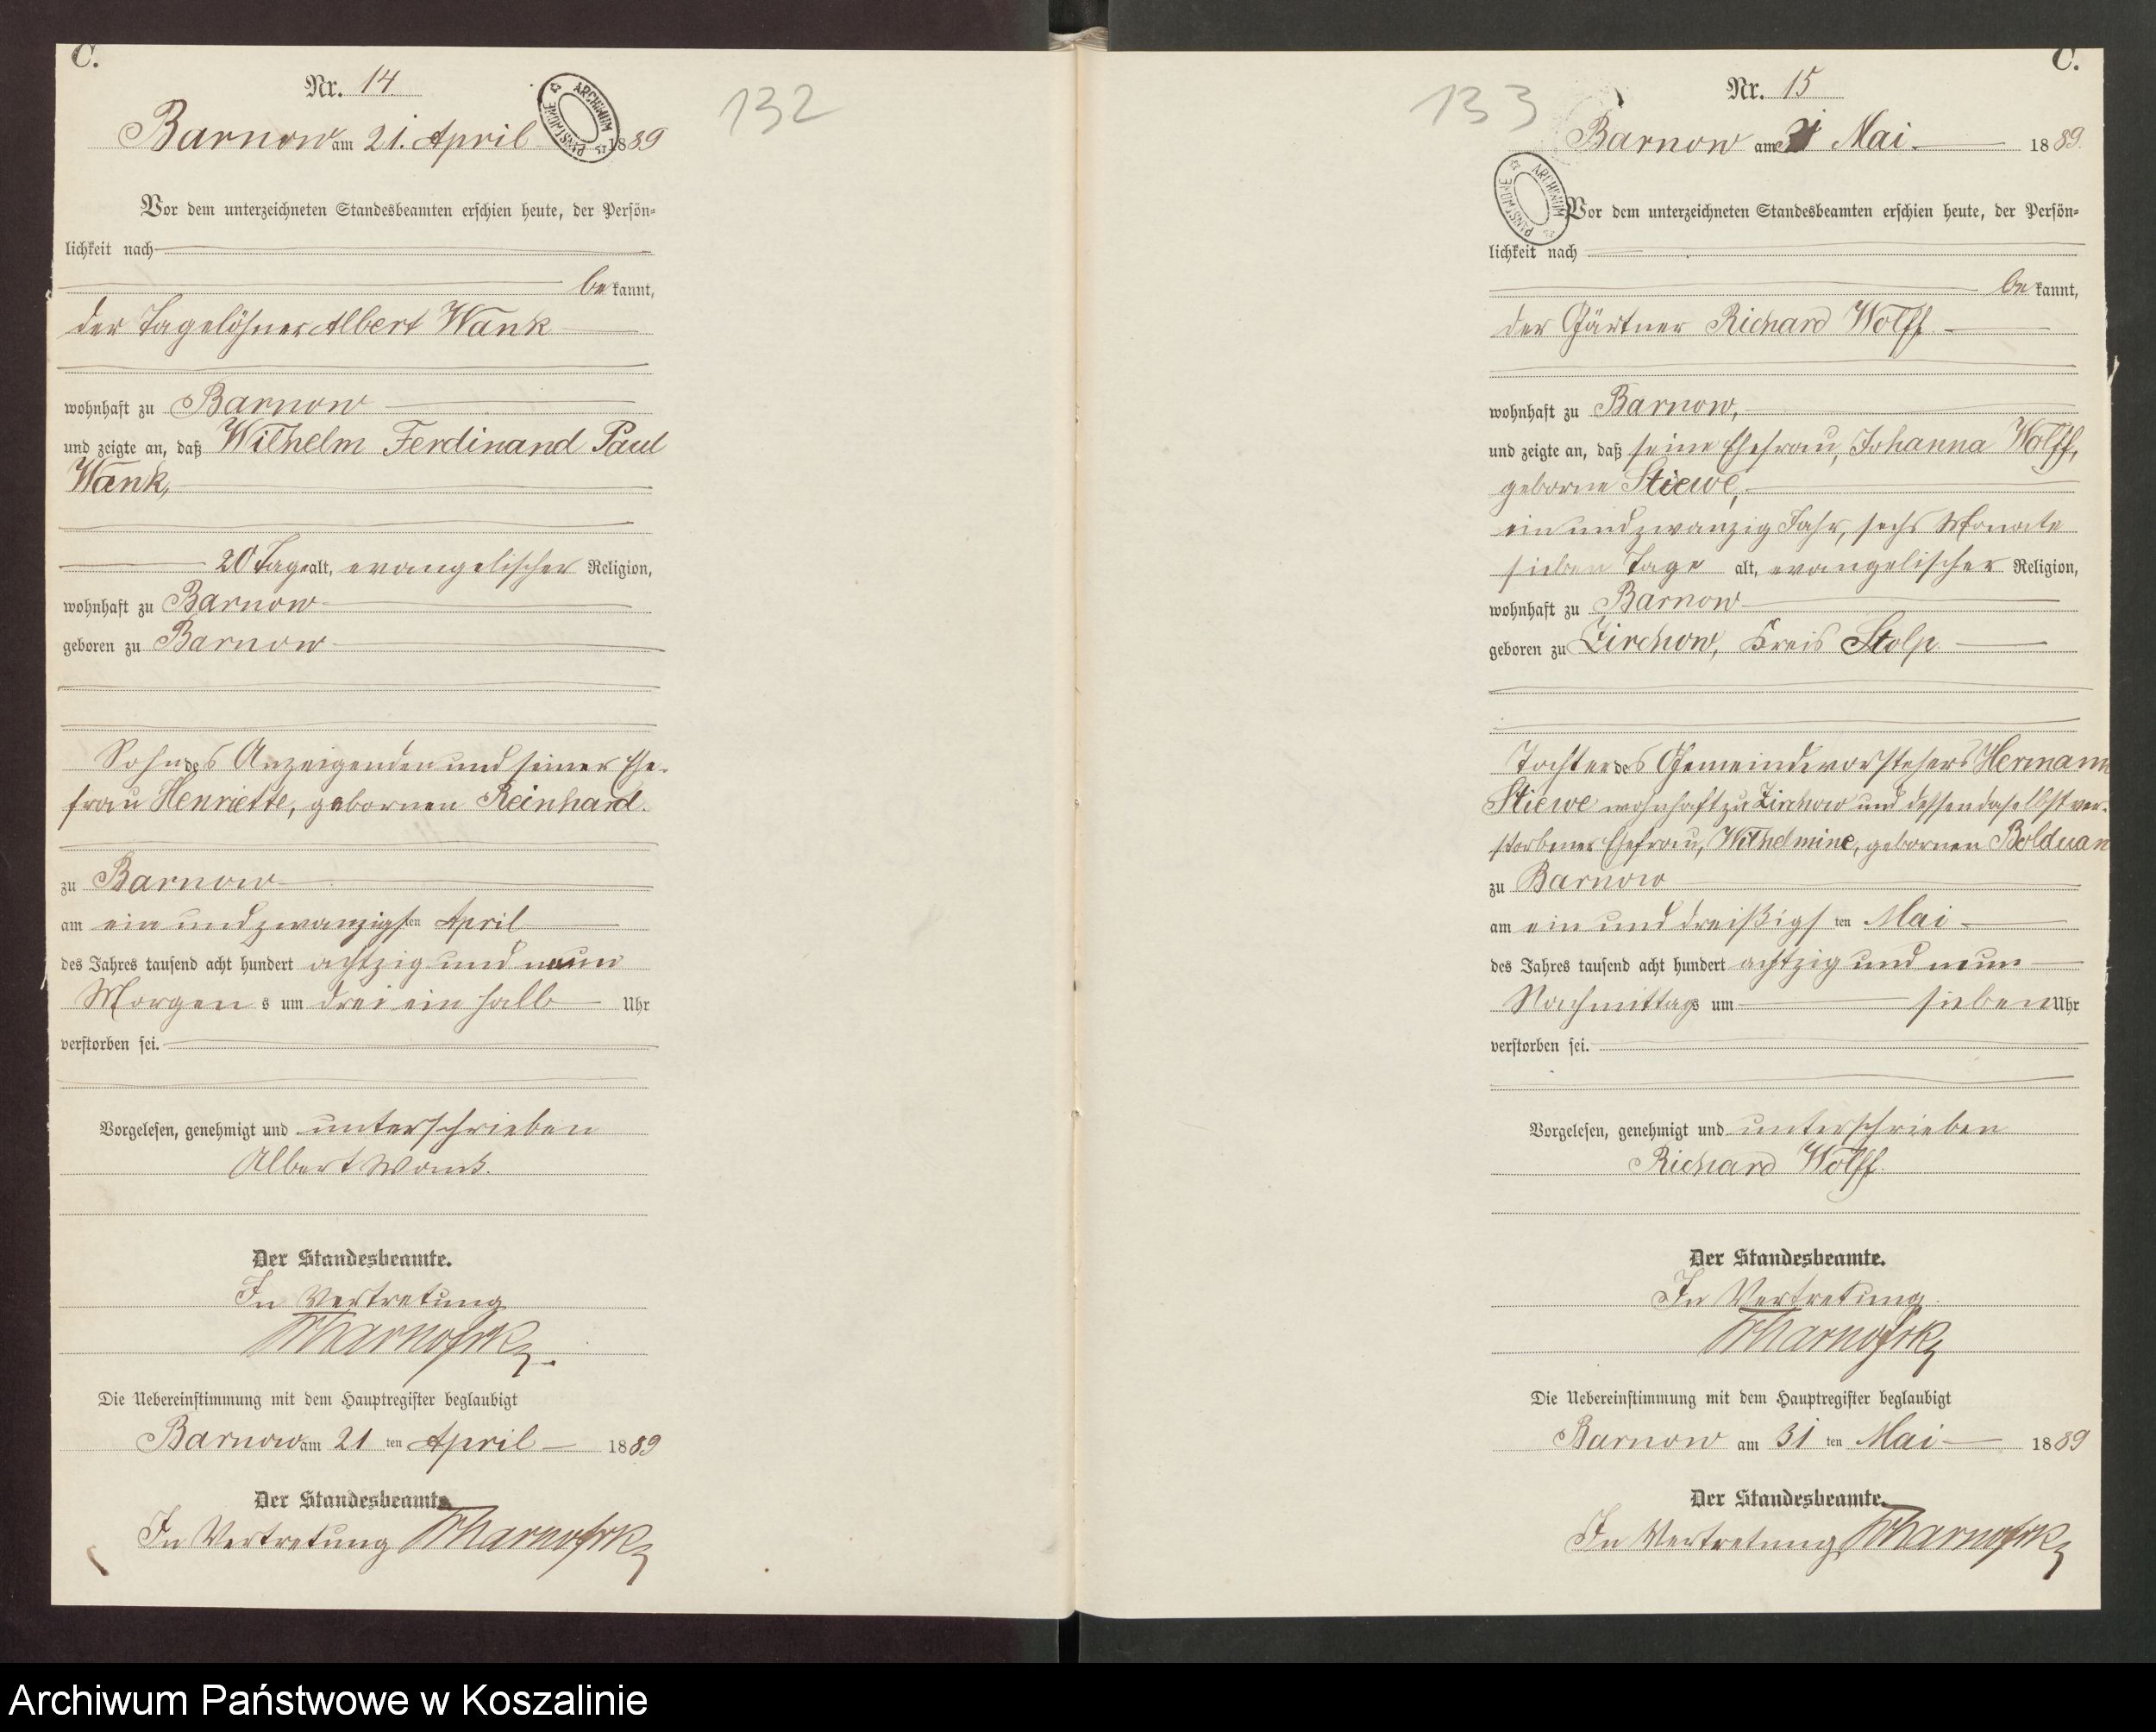 C.
Nr. 14
132
Barnow am 21. April 1889
ARCHIWUM PAŃSTWOWE
Vor dem unterzeichneten Standesbeamten erschien heute, der Persön-
lichkeit nach
be kannt,
der Tagelöhner Albert Wank
wohnhaft zu Barnow
und zeigte an, daß Wilhelm Ferdinand Paul
Wank,
20 Tage alt, evangelischer Religion,
wohnhaft zu Barnow
geboren zu Barnow
Sohn des Anzeigenden und seiner Ehe-
frau Henriette, gebornen Reinhard.
zu Barnow
am ein und zwanzigsten April
des Jahres tausend acht hundert achtzig und neun
Morgens um drei ein halb Uhr
verstorben sei.
Vorgelesen, genehmigt und unterschrieben
Albert Wank.
Der Standesbeamte.
In Vertretung
Die Uebereinstimmung mit dem Hauptregister beglaubigt
Barnow am 21 ten April 1889
Der Standesbeamte
In Vertretung
C.
Nr. 15
133
Barnow am 31 Mai 1889.
ARCHIWUM PAŃSTWOWE
Vor dem unterzeichneten Standesbeamten erschien heute, der Persön-
lichkeit nach
be kannt,
der Gärtner Richard Wolff.
wohnhaft zu Barnow,
und zeigte an, daß seine Ehefrau, Johanna Wolff,
geborne Stiewe,
ein und zwanzig Jahr, sechs Monate
sieben Tage alt, evangelischer Religion,
wohnhaft zu Barnow
geboren zu Zirchow, Kreis Stolp.
Tochter des Gemeindevorstehers Hermann
Stiewe wohnhaft zu Zirchow und dessen daselbst ver-
storbener Ehefrau, Wilhelmine, gebornen Bolduan
zu Barnow
am ein und dreißigsten Mai
des Jahres tausend acht hundert achtzig und neun
Nachmittags um sieben Uhr
verstorben sei.
Vorgelesen, genehmigt und unterschrieben
Richard Wolff.
Der Standesbeamte.
In Vertretung.
Die Uebereinstimmung mit dem Hauptregister beglaubigt
Barnow am 31 ten Mai 1889
Der Standesbeamte.
In Vertretung
Archiwum Państwowe w Koszalinie